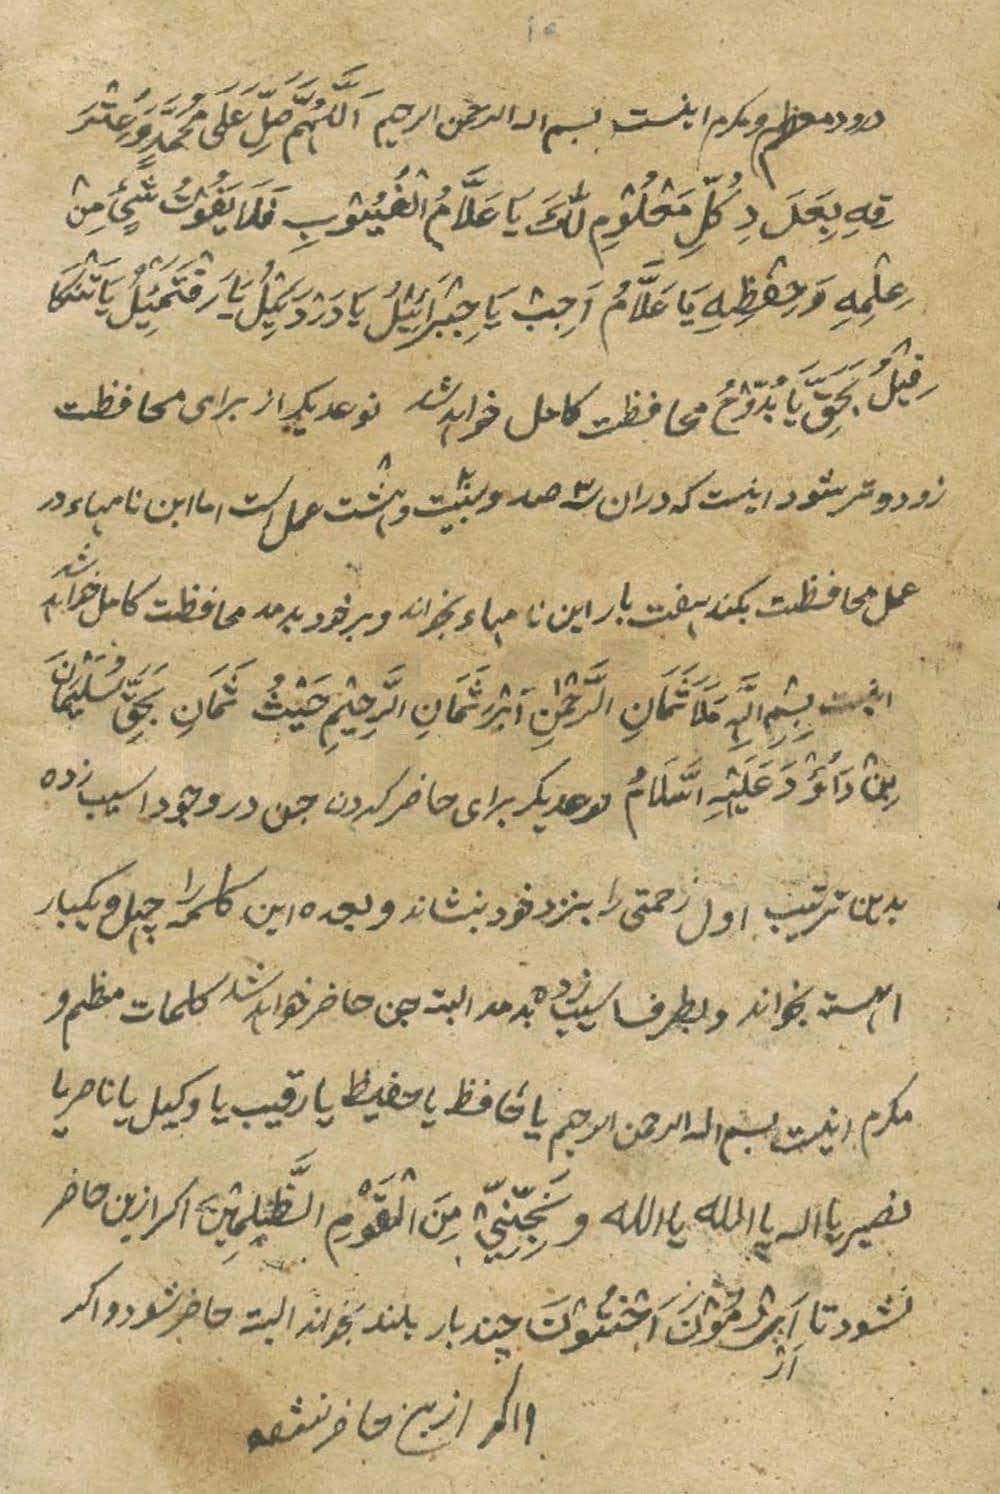 درود معظم و مکرم اینست بسم الله الرحمن الرحیم اَللّٰهُمَّ صَلِّ عَلَی مُحَمَّدٍ وَعِتْرَ
تِهِ بِعَدَدِ كُلِّ مَعْلُوْمٍ لَكَ يَا عَلَّامُ الْغُيُوْبِ فَلَا يَفُوْتُ شَيْئٌ مِنْ
عِلْمِهِ وَحِفْظِهِ يَا عَلَّامُ اَجِبْ يَا جِبْرَائِيْلُ يَا دَرْدَئِيْلُ يَا رَفْتَمَئِيْلُ يَا تَنْكَا
فِيْلُ بَحَقِّ يَا بُدُّوْحُ محافظت کامل خواهد شد نوعدیکر از برای محافظت
زودوتر شود اینست که دران سه صد و بیست و هشت عمل است اما این نامهاء در
عمل محافظت بکند هفت بار این نامهاء بخواند و بر خود بدمد محافظت کامل خواهد شد
اینست بِسْمِ اللهِ مَلَا ثَمَانِ الرَّحْمٰنِ اَبْرَ ثَمَانِ الرَّحِيْمِ حَيْثُ ثَمَانِ بَحَقِّ سُلَيْمَانَ
بِنْ دَاوُوْدَ عَلَيْهِ السَّلَامُ نوعدیکر برای حاضر کردن جن در وجود اسیب زده
بدین ترتیب اول زحمتی را بنزد خود بنشاند و بعده این کلمه را چهل و یکبار
اهسته بخواند و بطرف اسیب زده بدمد البته جن حاضر خواهد شد کلمات معظم و
مکرم اینست بسم الله الرحمن الرحیم یا حافظ یا حفیظ یا رقیب یا وکیل یا ناصر یا
نصیر یا الله یا الله یا الله و نَجِّنِيْ مِنَ الْقَوْمِ الظّٰلِمِيْنَ اکر ازین حاضر
نشود تا اَبْرْمُوْنَ اَخْنُوْنَ چند بار بلند بخواند البته حاضر شود و اکر
از
و اکر ازین حاضر نشود